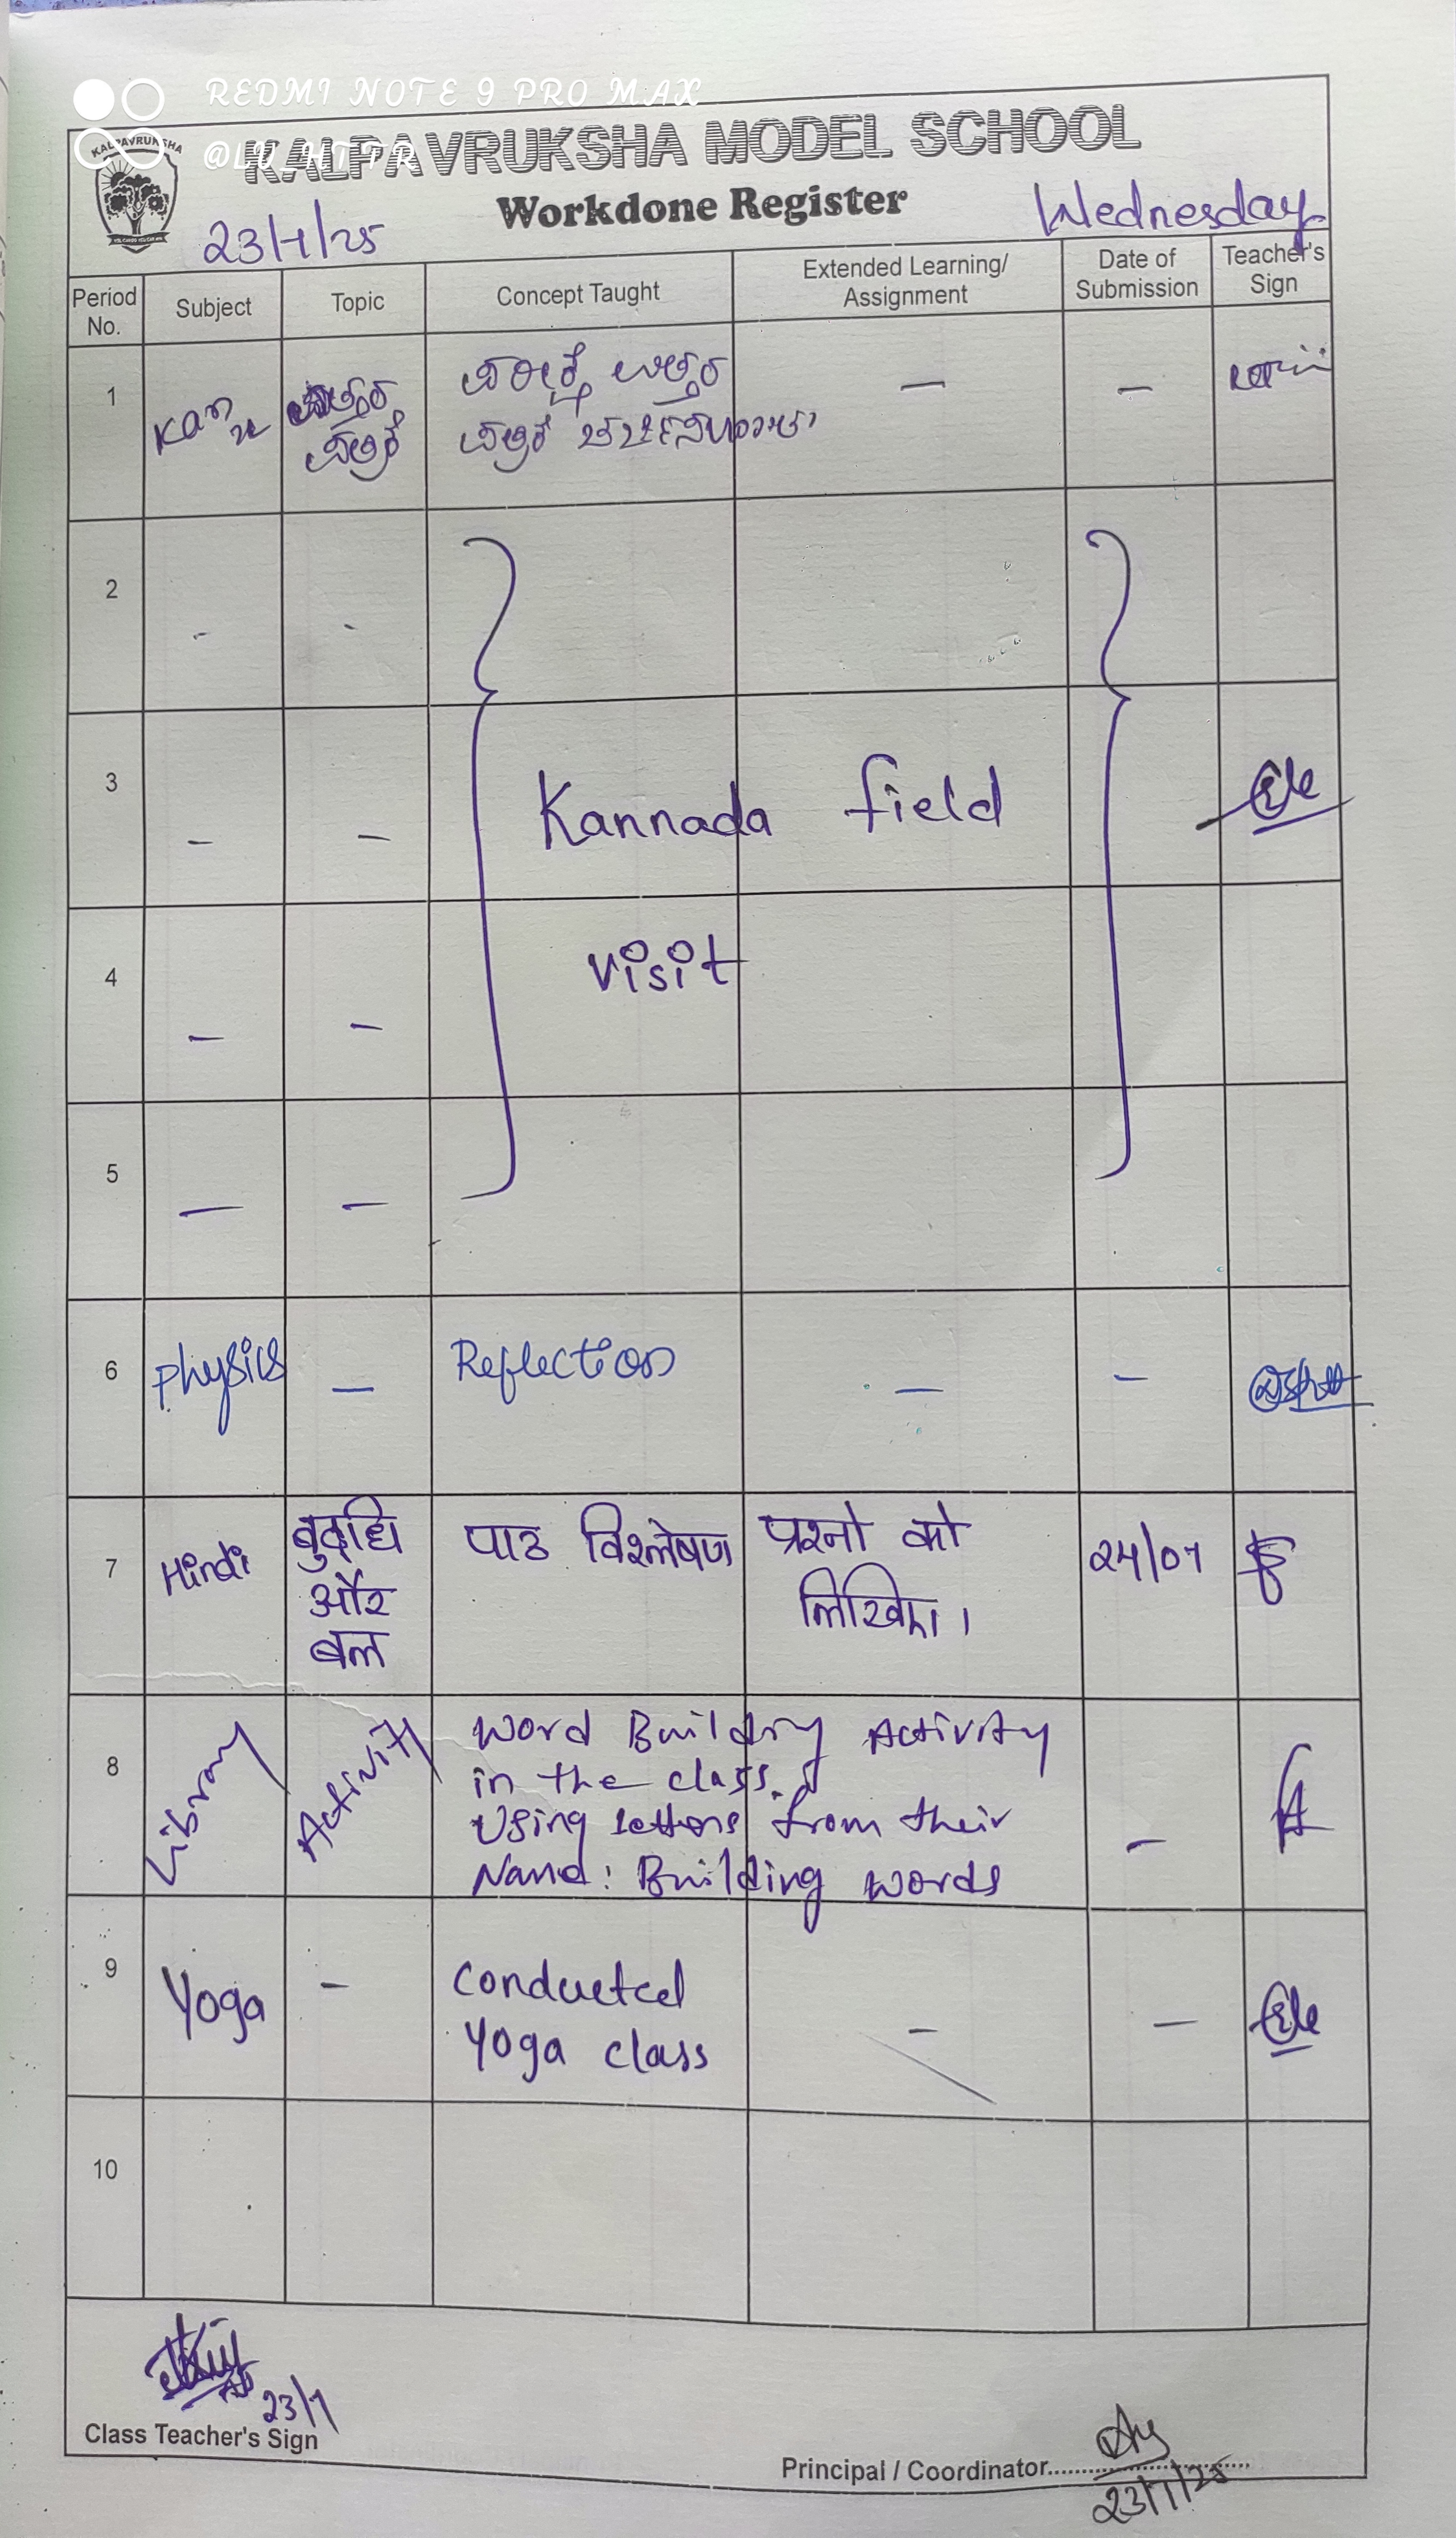 REDMI NOTE 9 PRO MAX
KALPAVRUKSHA
KALPAVRUKSHA MODEL SCHOOL
Workdone Register
23/7/25
Wednesday
Period No.
Subject
Topic
Concept Taught
Extended Learning/
Assignment
Date of
Submission
Teacher's
Sign
1
Kan
ಉತ್ತರ
ಪತ್ರಿಕೆ
ಪರೀಕ್ಷೆ ಉತ್ತರ
ಪತ್ರಿಕೆ
—
—
2
-
-
3
—
—
Kannada field
4
—
—
visit
5
—
—
6
physics
—
Reflection
—
—
7
Hindi
बुद्धि
और
बल
पाठ विश्लेषण
प्रश्नो को
लिखिए।
24/07
8
Library
Activity
Word Building Activity
in the class.
Using letters from their
Name: Building words
—
9
Yoga
—
Conducted
Yoga class
—
—
10
23/7
Class Teacher's Sign
Principal / Coordinator
23/7/25